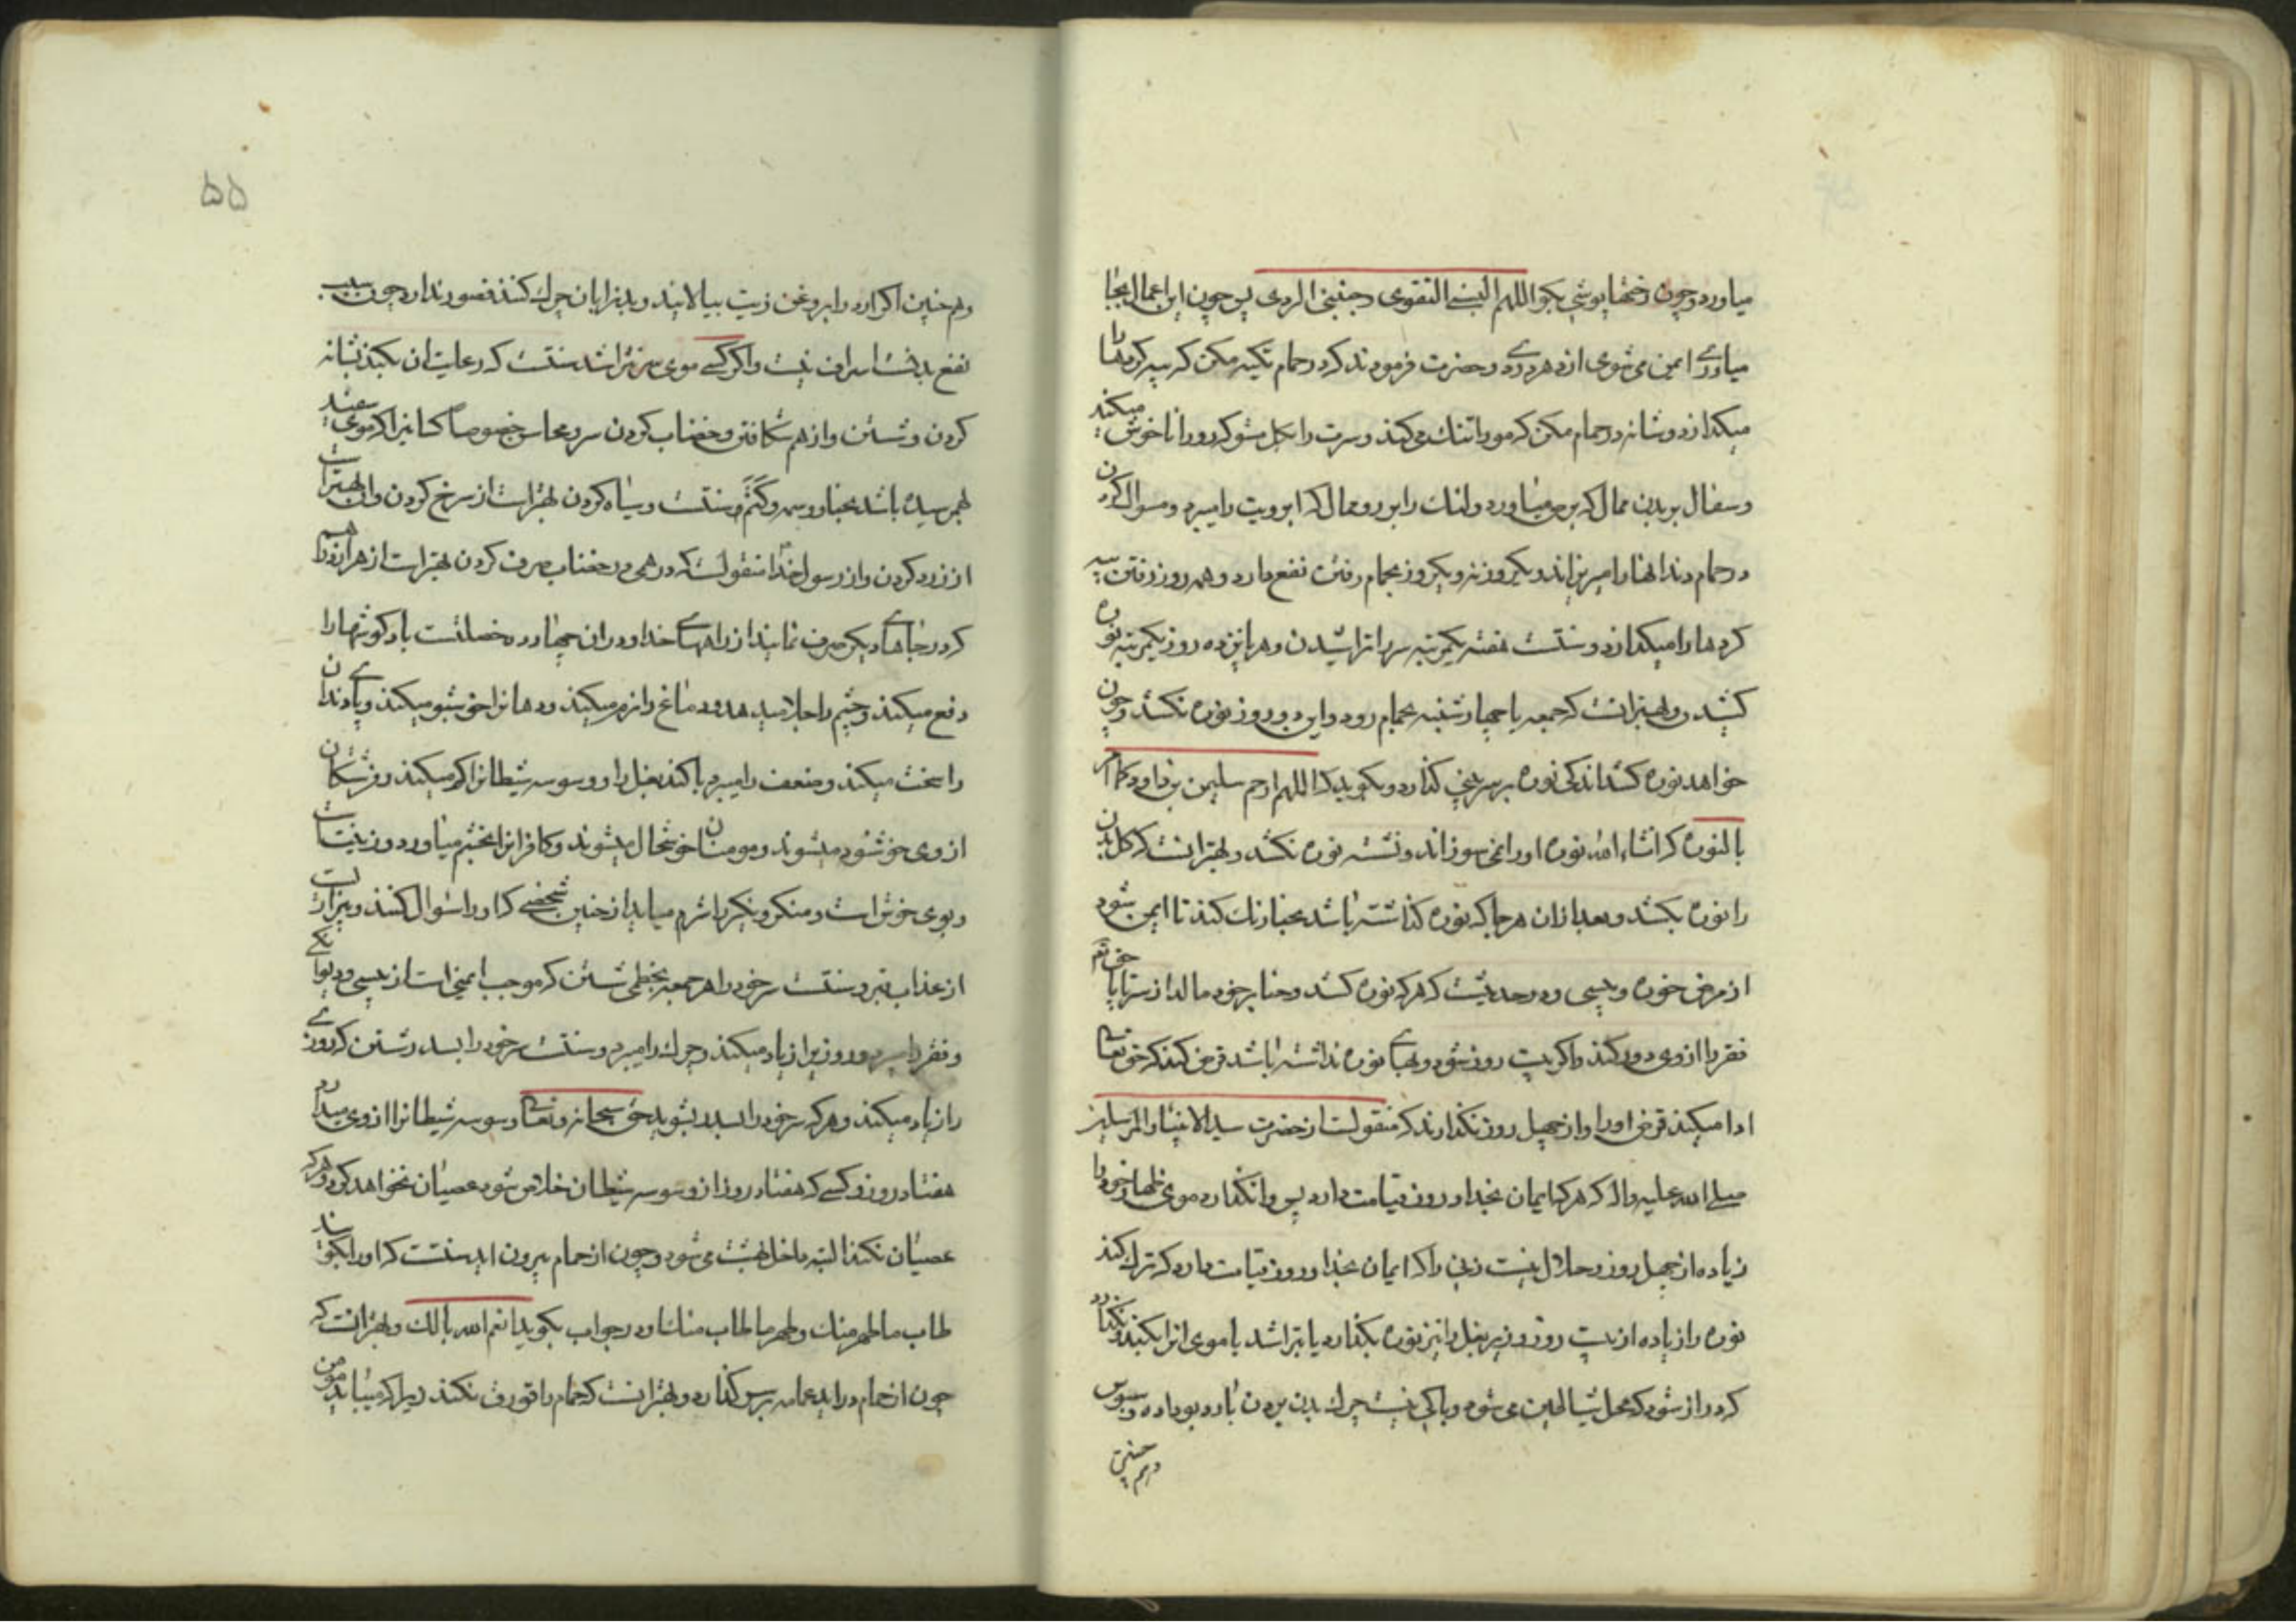 میاورد و چون رختها پوشی بکو اللهم البسنی التقوی و جنبنی الردی پس چون این اعمال بجا
میاوری ایمن می شوی از هر دردی و حضرت فرمودند که در حمام تکیه مکن که پیه کردها را
میکدازد و شانه در حمام مکن که مو را تنک می کند و سرت را بکل مشو که رو را ناخوش میکند
و سفال بر بدن ممال که برص میاورد و لنک را بر رو ممال که ابرویت را میبرد و مسواک کردن
در حمام دندانها را میریزاند و یکروز نه و یکروز بحمام رفتن نفع دارد و همه روز رفتن پیه
کردها را میکدازد و سنتست هفته یکمرتبه سر را تراشیدن و هر پانزده روز یکمرتبه نوره
کشیدن و بهتر انست که جمعه یا چهارشنبه بحمام رود و این دو روز نوره نکشد و چون
خواهد نوره کشد اندکی نوره بر سر بینی کذارد و بکوید که اللهم ارحم سلیمن بن داود کما امر
بالنوره که انشاء الله نوره او را نمی سوزاند و نشسته نوره نکشد و بهتر انست که کل بدن
را نوره بکشد و بعد از ان هر جا که نوره کذاشته باشد بحنا رنک کند تا ایمن شود
از مرض خوره و پیسی و در حدیثست که هر که نوره کشد و حنا بر خود مالد از سر تا پا حق تع
فقر را از وی دور کند و اکر بیست روز شود و بهای نوره نداشته باشد قرض کند که حق تعالی
ادا میکند قرض او را و از چهل روز نکذارند که منقولست از حضرت سید الانبیاء و المرسلین
صلی الله علیه و اله که هر که ایمان بخدا و روز قیامت دارد پس وانکذارد موی ظهار خود را
زیاده از چهل روز و حلال نیست زنی را که ایمان بخدا و روز قیامت دارد که ترک کند
نوره را زیاده از بیست روز و زیر بغل را نیز نوره بکذارد یا بتراشد یا موی انرا بکند و نکذارد
که دراز شود که محل شیاطین می شود و باکی نیست چرک بدن بردن بارد بو داده و سبوس
و هم چنین
۵۵
و هم چنین اکر ارد را بروغن زیت بیالایند و بدنرا بان چرک کنند قصور ندارد چون سبب
نفع بدنست اسراف نیست و اکر کسی موی سر نتراشد سنتست که رعایت ان بکند بشانه
کردن و شستن و از هم شکافتن و خضاب کردن سر و محاسن خصوصا کسانیرا که موی سفید
بهم رسیده باشد بحنا و وسمه و کتم سنتست و سیاه کردن بهتر است از سرخ کردن و ان بهتر است
از زرد کردن و از رسول خدا منقولست که درهمی در خضاب صرف کردن بهتر است از هزار درهم
که در جاهای دیکر صرف نمایند از راههای خدا و در ان چهارده خصلتست باد کوشها را
دفع میکند و چشم را جلا میدهد و دماغ را نرم میکند و دهانرا خوشبو میکند و پای دندان
را سخت میکند و ضعف را میبرد یا کند بغل را و وسوسه شیطانرا کم میکند و فرشتکان
از وی خوشنود میشوند و مومنان خوشحال میشوند و کافرانرا بخشم میاورد و زینتست
و بوی خوش است و منکر و نکیر را شرم میاید از چنین شخصی که او را سوال کنند و بیزاریست
از عذاب قبر و سنتست سر خود را هر جمعه بخطمی شستن که موجب ایمنی است از پیسی و دیوانکی
و فقر را میبرد و روزیرا زیاد میکند و چرک را میبرد و سنتست سر خود را بسدر شستن که روزی
را زیاد میکند و هر که سر خود را بسدر بشوید حق سبحانه و تعالی وسوسه شیطانرا از وی میدارد
هفتاد روز و کسی که هفتاد روز از وسوسه شیطان خلاص شود عصیان نخواهد کرد و هر که
عصیان نکند البته داخل بهشت می شود و چون از حمام بیرون اید سنتست که او را بکویند
طاب ما طهر منک و طهر ما طاب منک و در جواب بکوید انعم الله بالک و بهتر انست که
چون از حمام در اید عمامه بر سر کذارد و بهتر انست که حمام را قورق نکند زیرا که میباید مومن